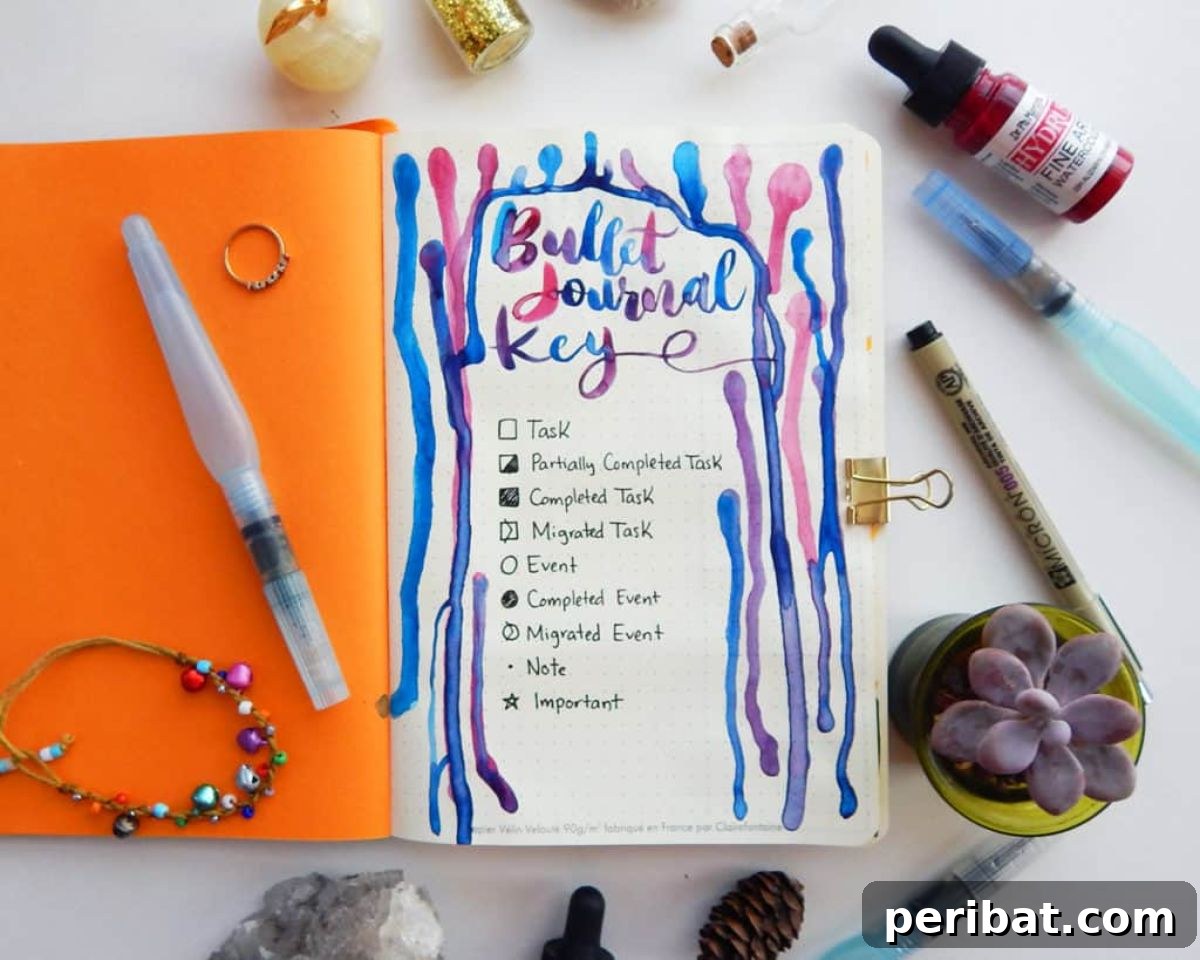 Bullet
Journal
Key
Task
Partially Completed Task
Completed Task
Migrated Task
Event
Completed Event
Migrated Event
Note
Important
Vélin Velouté 90g/m² fabriqué en France par Clairefontaine
HYDRUS
FINE ART
WATERCOLOR
MICRON 005
peribat.com